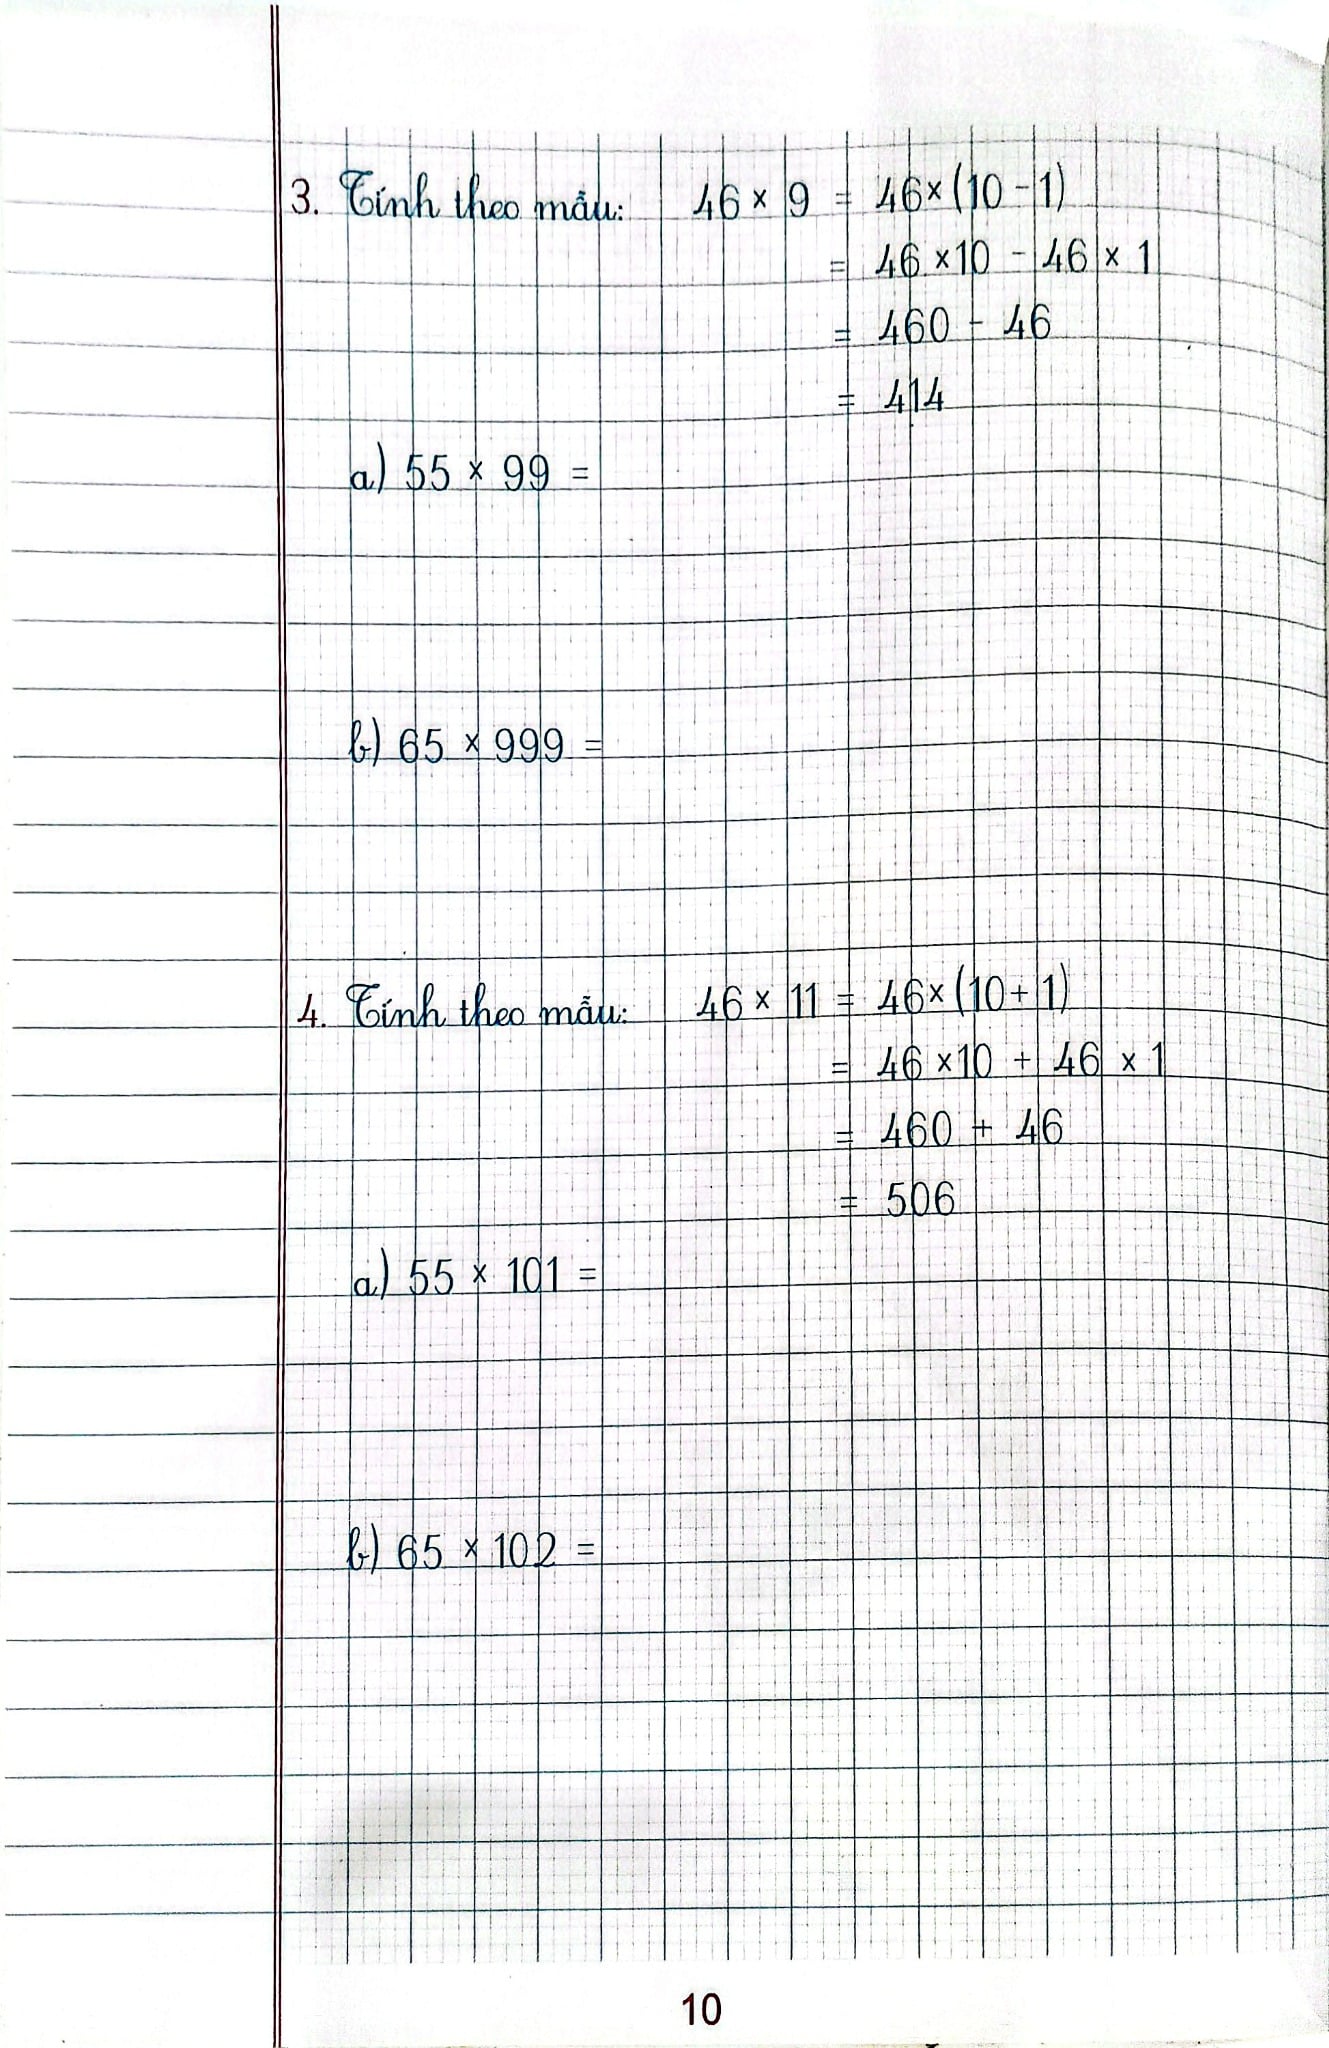 3. Tính theo mẫu: 46 × 9 = 46×(10 - 1)
= 46 ×10 - 46 × 1
= 460 - 46
= 414
a) 55 × 99 =
b) 65 × 999 =
4. Tính theo mẫu: 46 × 11 = 46×(10+1)
= 46 ×10 + 46 × 1
= 460 + 46
= 506
a) 55 × 101 =
b) 65 × 102 =
10